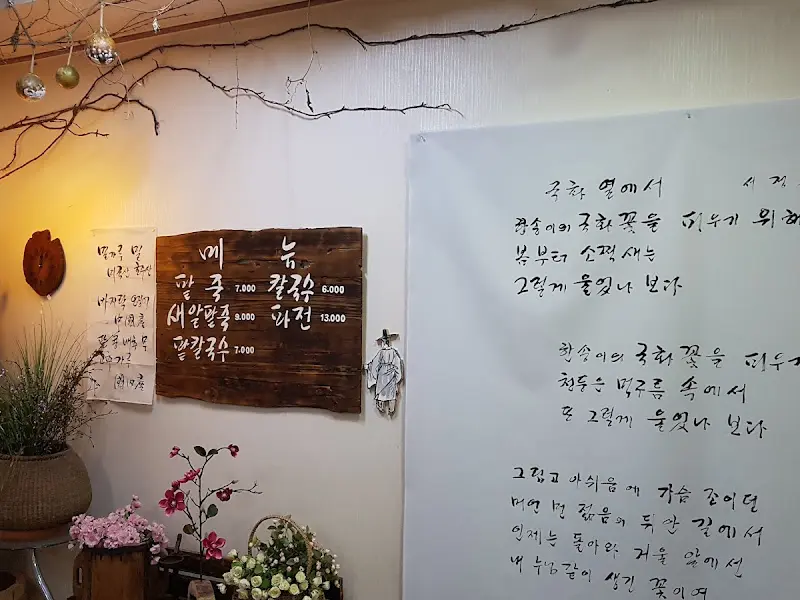 메 뉴
팥 죽 7.000
새알팥죽 9.000
팥칼국수 7.000
칼국수 6.000
파전 13.000
밀가루 밀
미국산 호주산
바지락
팥 쌀 배추 무
고추가루
국화 옆에서
서 정
한송이의 국화꽃을 피우기 위해
봄부터 소쩍새는
그렇게 울었나 보다
한송이의 국화꽃을 피우
천둥은 먹구름 속에서
또 그렇게 울었나 보다
그립고 아쉬움에 가슴 조이던
머언 먼 젊음의 뒤안길에서
인제는 돌아와 거울 앞에선
내 누님같이 생긴 꽃이여